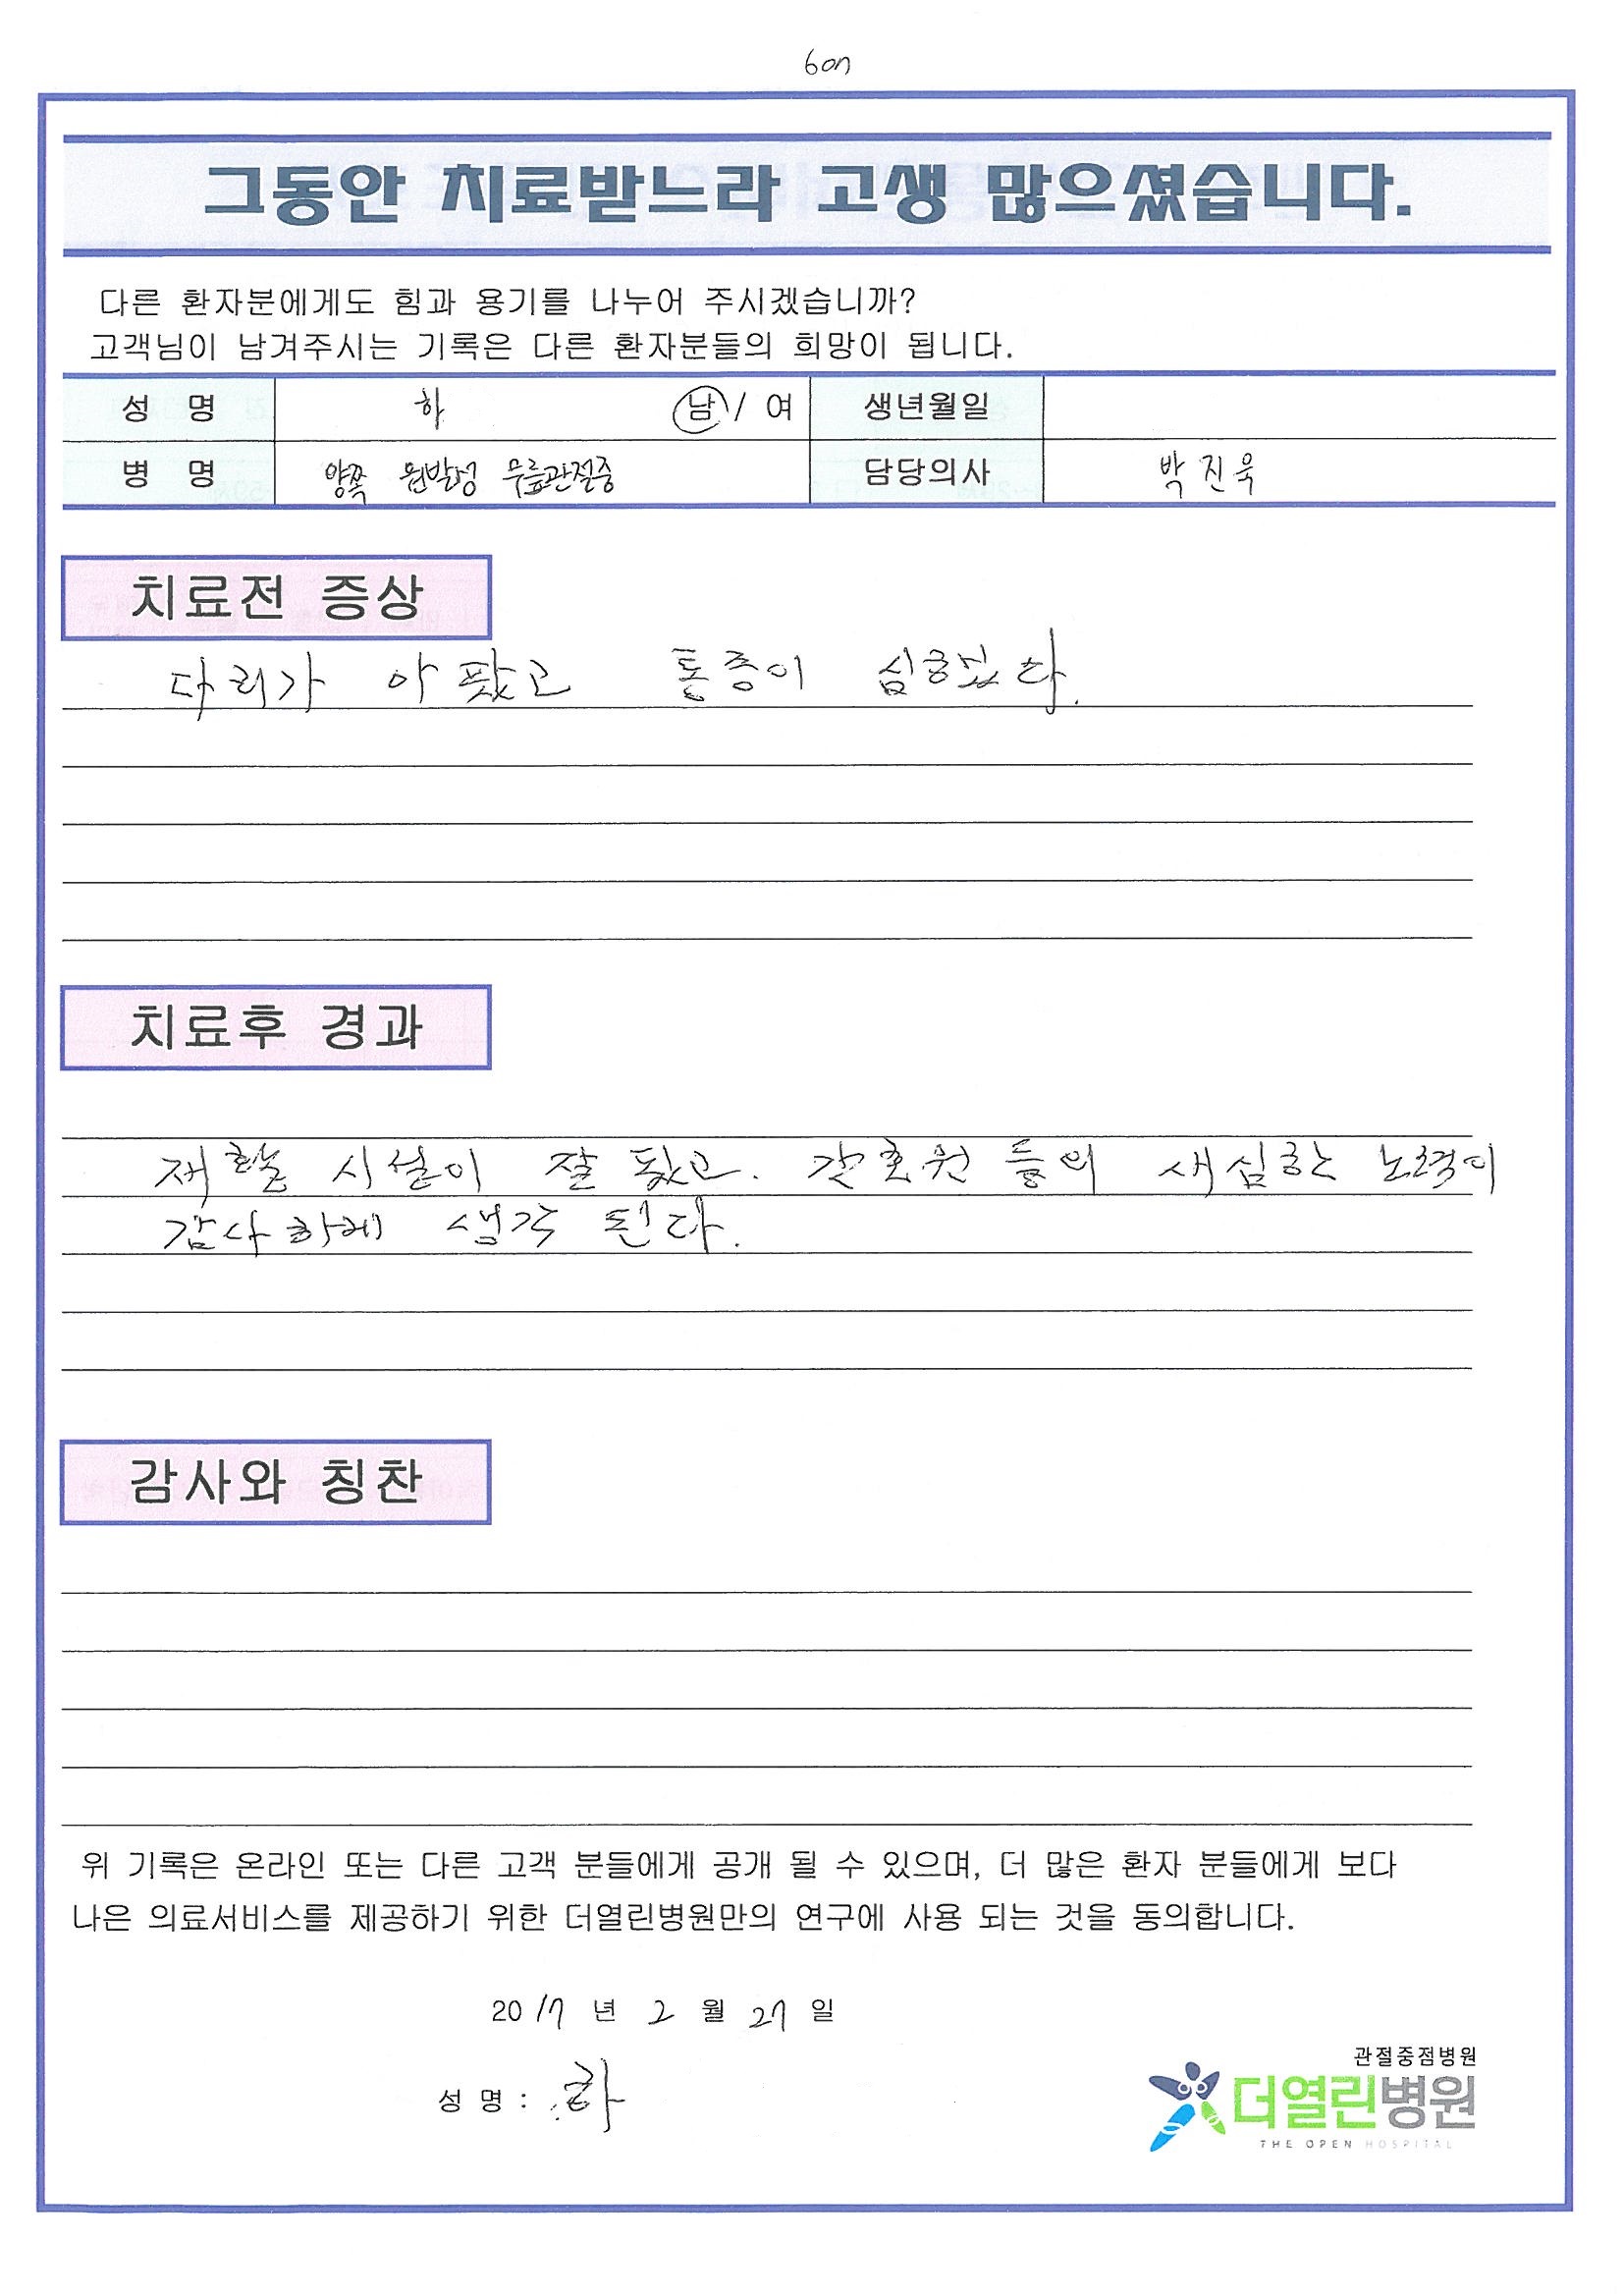 607
그동안 치료받느라 고생 많으셨습니다.
다른 환자분에게도 힘과 용기를 나누어 주시겠습니까?
고객님이 남겨주시는 기록은 다른 환자분들의 희망이 됩니다.
성 명 하 남 / 여 생년월일
병 명 양쪽 원발성 무릎관절증 담당의사 박진욱
치료전 증상
다리가 아팠고 통증이 심하였다.
치료후 경과
재활 시설이 잘 됐고. 간호원 들의 새심한 노력이
감사하게 생각 된다.
감사와 칭찬
위 기록은 온라인 또는 다른 고객 분들에게 공개 될 수 있으며, 더 많은 환자 분들에게 보다
나은 의료서비스를 제공하기 위한 더열린병원만의 연구에 사용 되는 것을 동의합니다.
2017 년 2 월 27 일
성 명 : 하
관절중점병원
더열린병원
THE OPEN HOSPITAL